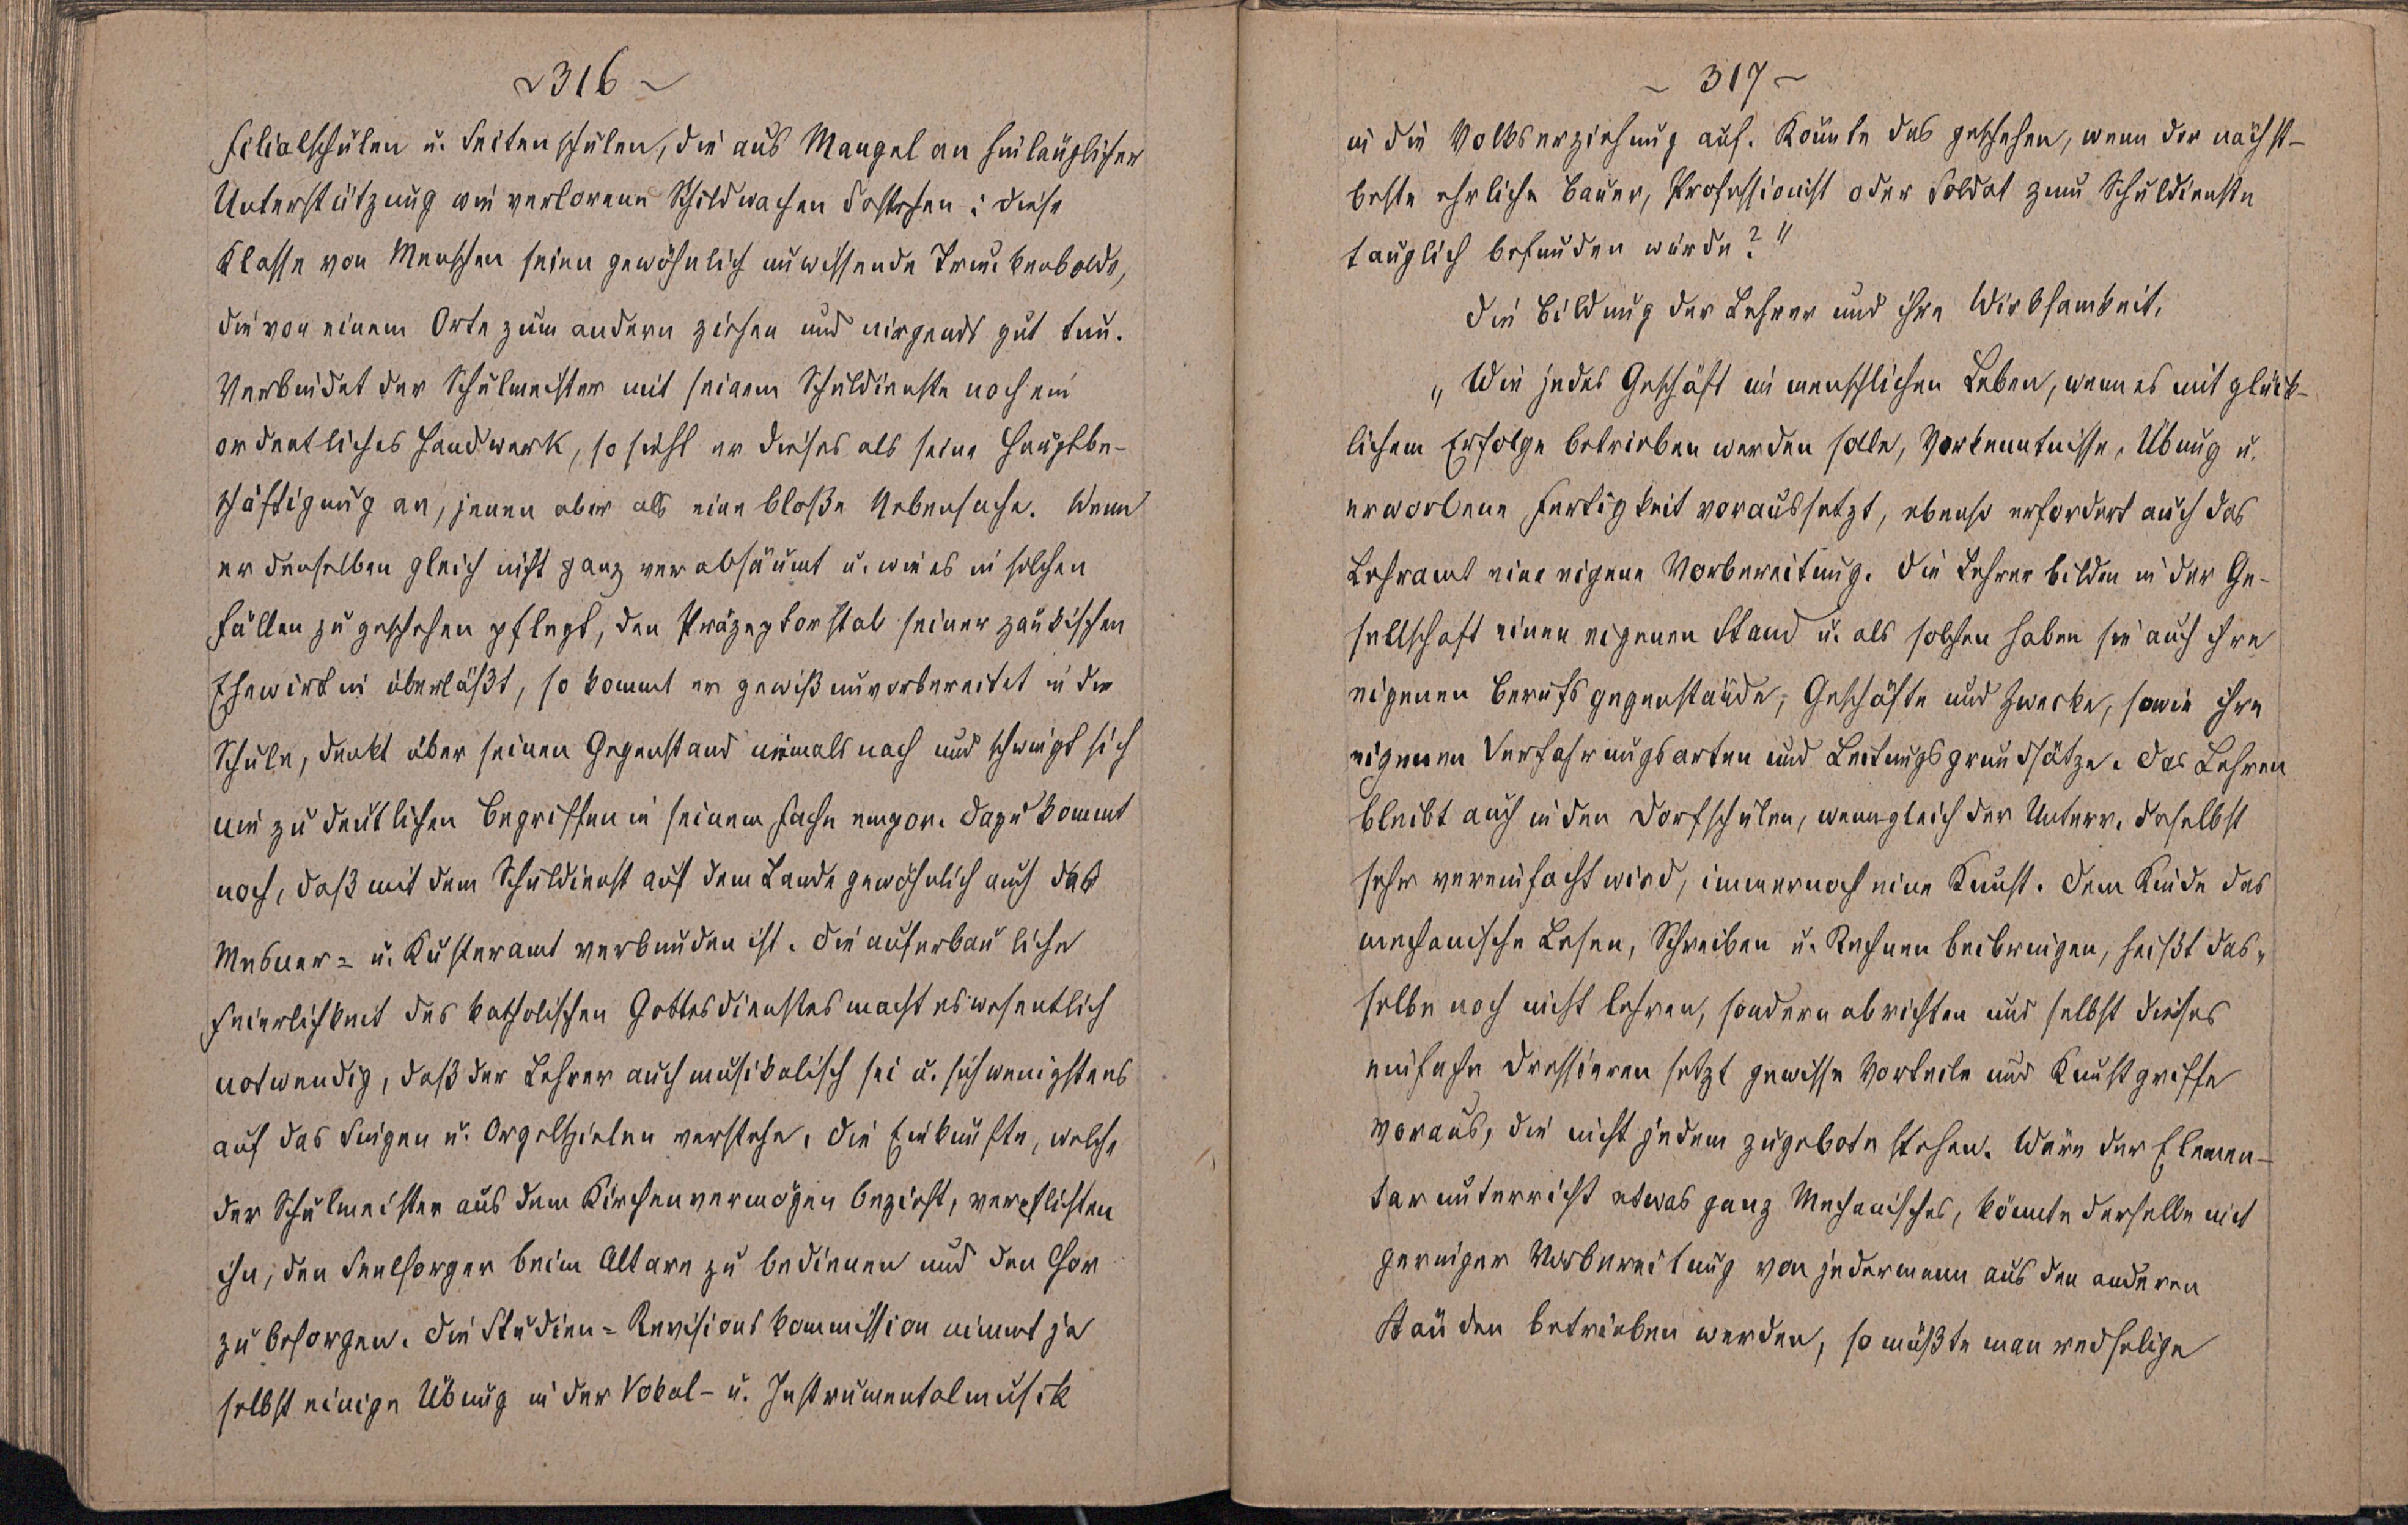 ~ 316 ~
Filialschulen u. Seitenschulen, die aus Mangel an hinlänglicher
Unterstützung wie verlorene Schildwachen dastehen: diese
Klasse von Menschen seien gewöhnlich unwissende Trunkenbolde,
die von einem Orte zum andern ziehen und nirgends gut tun.
Verbindet der Schulmeister mit seinem Schuldienste noch ein
ordentliches Handwerk, so sieht er dieses als seine Hauptbe-
schäftigung an, jenen aber als eine bloße Nebensache. Wenn
er denselben gleich nicht ganz verabsäumt u. wie es in solchen
Fällen zu geschehen pflegt, den Präzeptorstab seiner zänkischen
Ehewirtin überläßt, so kommt er gewiß unvorbereitet in die
Schule, denkt über seinen Gegenstand niemals nach und schwingt sich
nie zu deutlichen Begriffen in seinem Fache empor. Dazu kommt
noch, daß mit dem Schuldienst auf dem Lande gewöhnlich auch das
Mesner- u. Küsteramt verbunden ist. Die auferbauliche
Feierlichkeit des katholischen Gottesdienstes macht es wesentlich
notwendig, daß der Lehrer auch musikalisch sei u. sich wenigstens
auf das Singen u. Orgelspielen verstehe. Die Einkünfte, welche
der Schulmeister aus dem Kirchenvermögen bezieht, verpflichten
ihn, den Seelsorger beim Altare zu bedienen und den Chor
zu besorgen. Die Studien-Revisionskommission nimmt ja
selbst einige Übung in der Vokal- u. Instrumentalmusik
~ 317 ~
in die Volkserziehung auf. Könnte das geschehen, wenn der nächst-
beste ehrliche Bauer, Professionist oder Soldat zum Schuldienste
tauglich befunden würde?"
Die Bildung der Lehrer und ihre Wirksamkeit.
„Wie jedes Geschäft im menschlichen Leben, wenn es mit glück-
lichem Erfolge betrieben werden solle, Vorkenntnisse, Übung u.
erworbene Fertigkeit voraussetzt, ebenso erfordert auch das
Lehramt eine eigene Vorbereitung. Die Lehrer bilden in der Ge-
sellschaft einen eigenen Stand u. als solchen haben sie auch ihre
eigenen Berufsgegenstände, Geschäfte und Zwecke, sowie ihre
eigenen Verfahrungsarten und Leitungsgrundsätze. Das Lehren
bleibt auch in den Dorfschulen, wenngleich der Unterr. daselbst
sehr vereinfacht wird, immernoch eine Kunst. Dem Kinde das
mechanische Lesen, Schreiben u. Rechnen beibringen, heißt das-
selbe noch nicht lehren, sondern abrichten und selbst dieses
einfache Dressieren setzt gewisse Vorteile und Kunstgriffe
voraus, die nicht jedem zugebote stehen. Wäre der Elemen-
tarunterricht etwas ganz Mechanisches, könnte derselbe mit
geringer Vorbereitung von jedermann aus den anderen
Ständen betrieben werden, so müßte man redselige